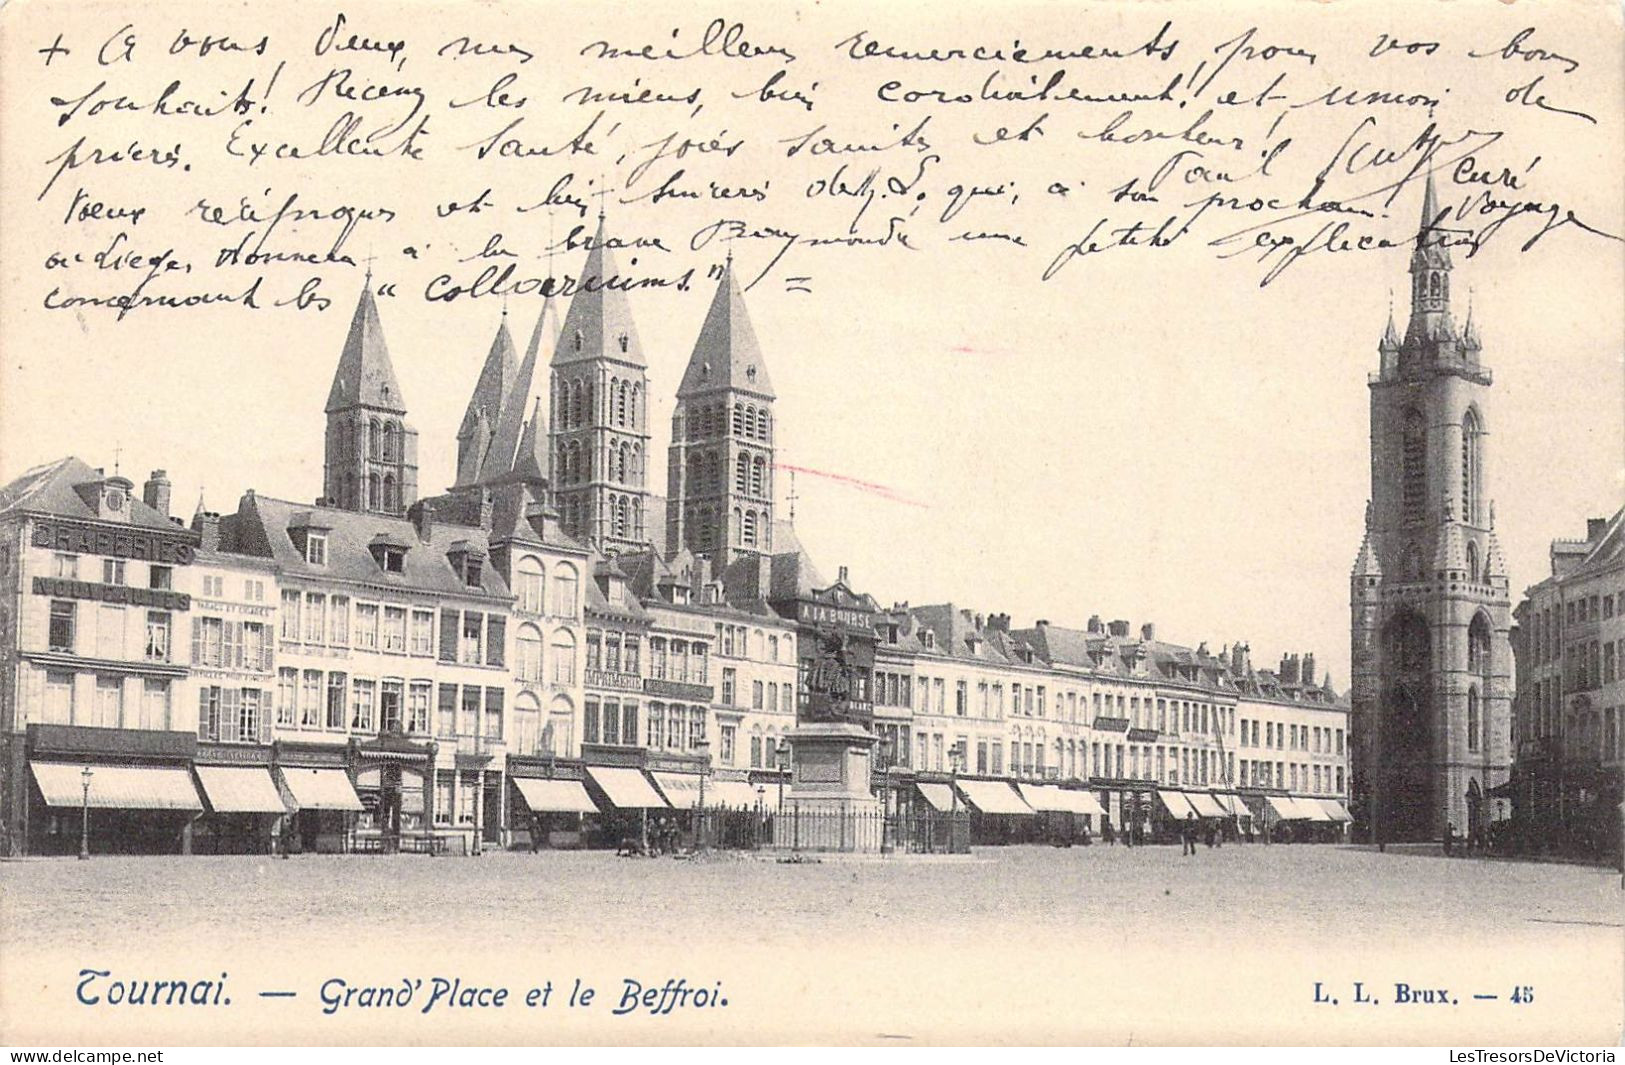 + A vous, Deux, mes meilleurs remerciements, pour vos bons
souhaits! Recevez les miens, bien cordialement! et union de
prières. Excellente Santé, joies saintes et bonheur!
Paul curé
Vœux réciproques et bien sincères de M. L. qui, à son prochain voyage
à Liège, donnera à la brave Raymonde une petite explication
concernant les "
DRAPERIES
NOUVEAUTES
TABACS ET CIGARES
A LA BOURSE
IMPRIMERIE
Tournai. — Grand'Place et le Beffroi.
L. L. Brux. — 45
LesTresorsDeVictoria